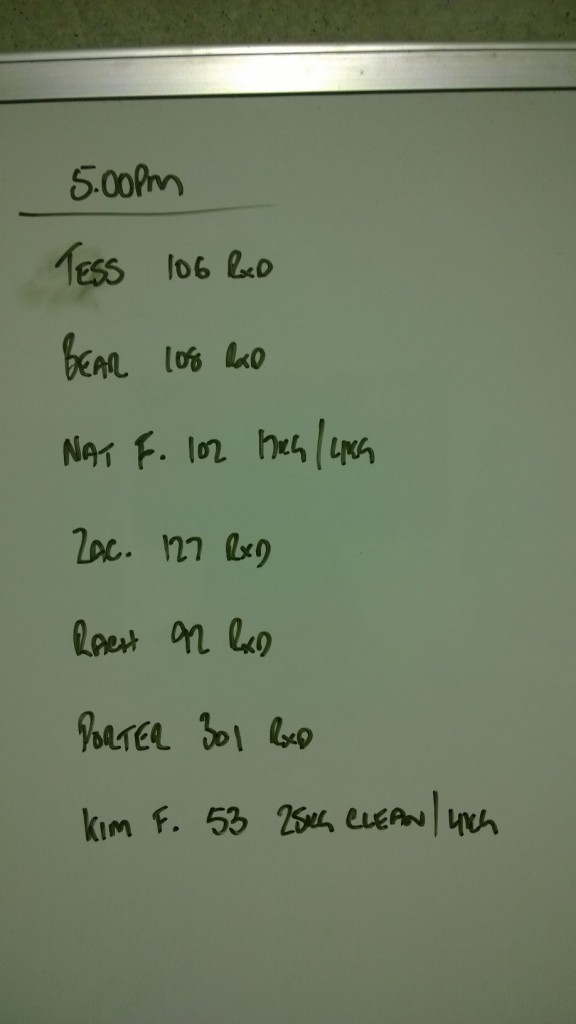 5.00PM
TESS 106 RxD
BEAR 108 RxD
NAT F. 102 17KG/4KG
ZAC. 127 RxD
RACH 92 RxD
PORTER 301 RxD
KIM F. 53 25KG CLEAN/4KG